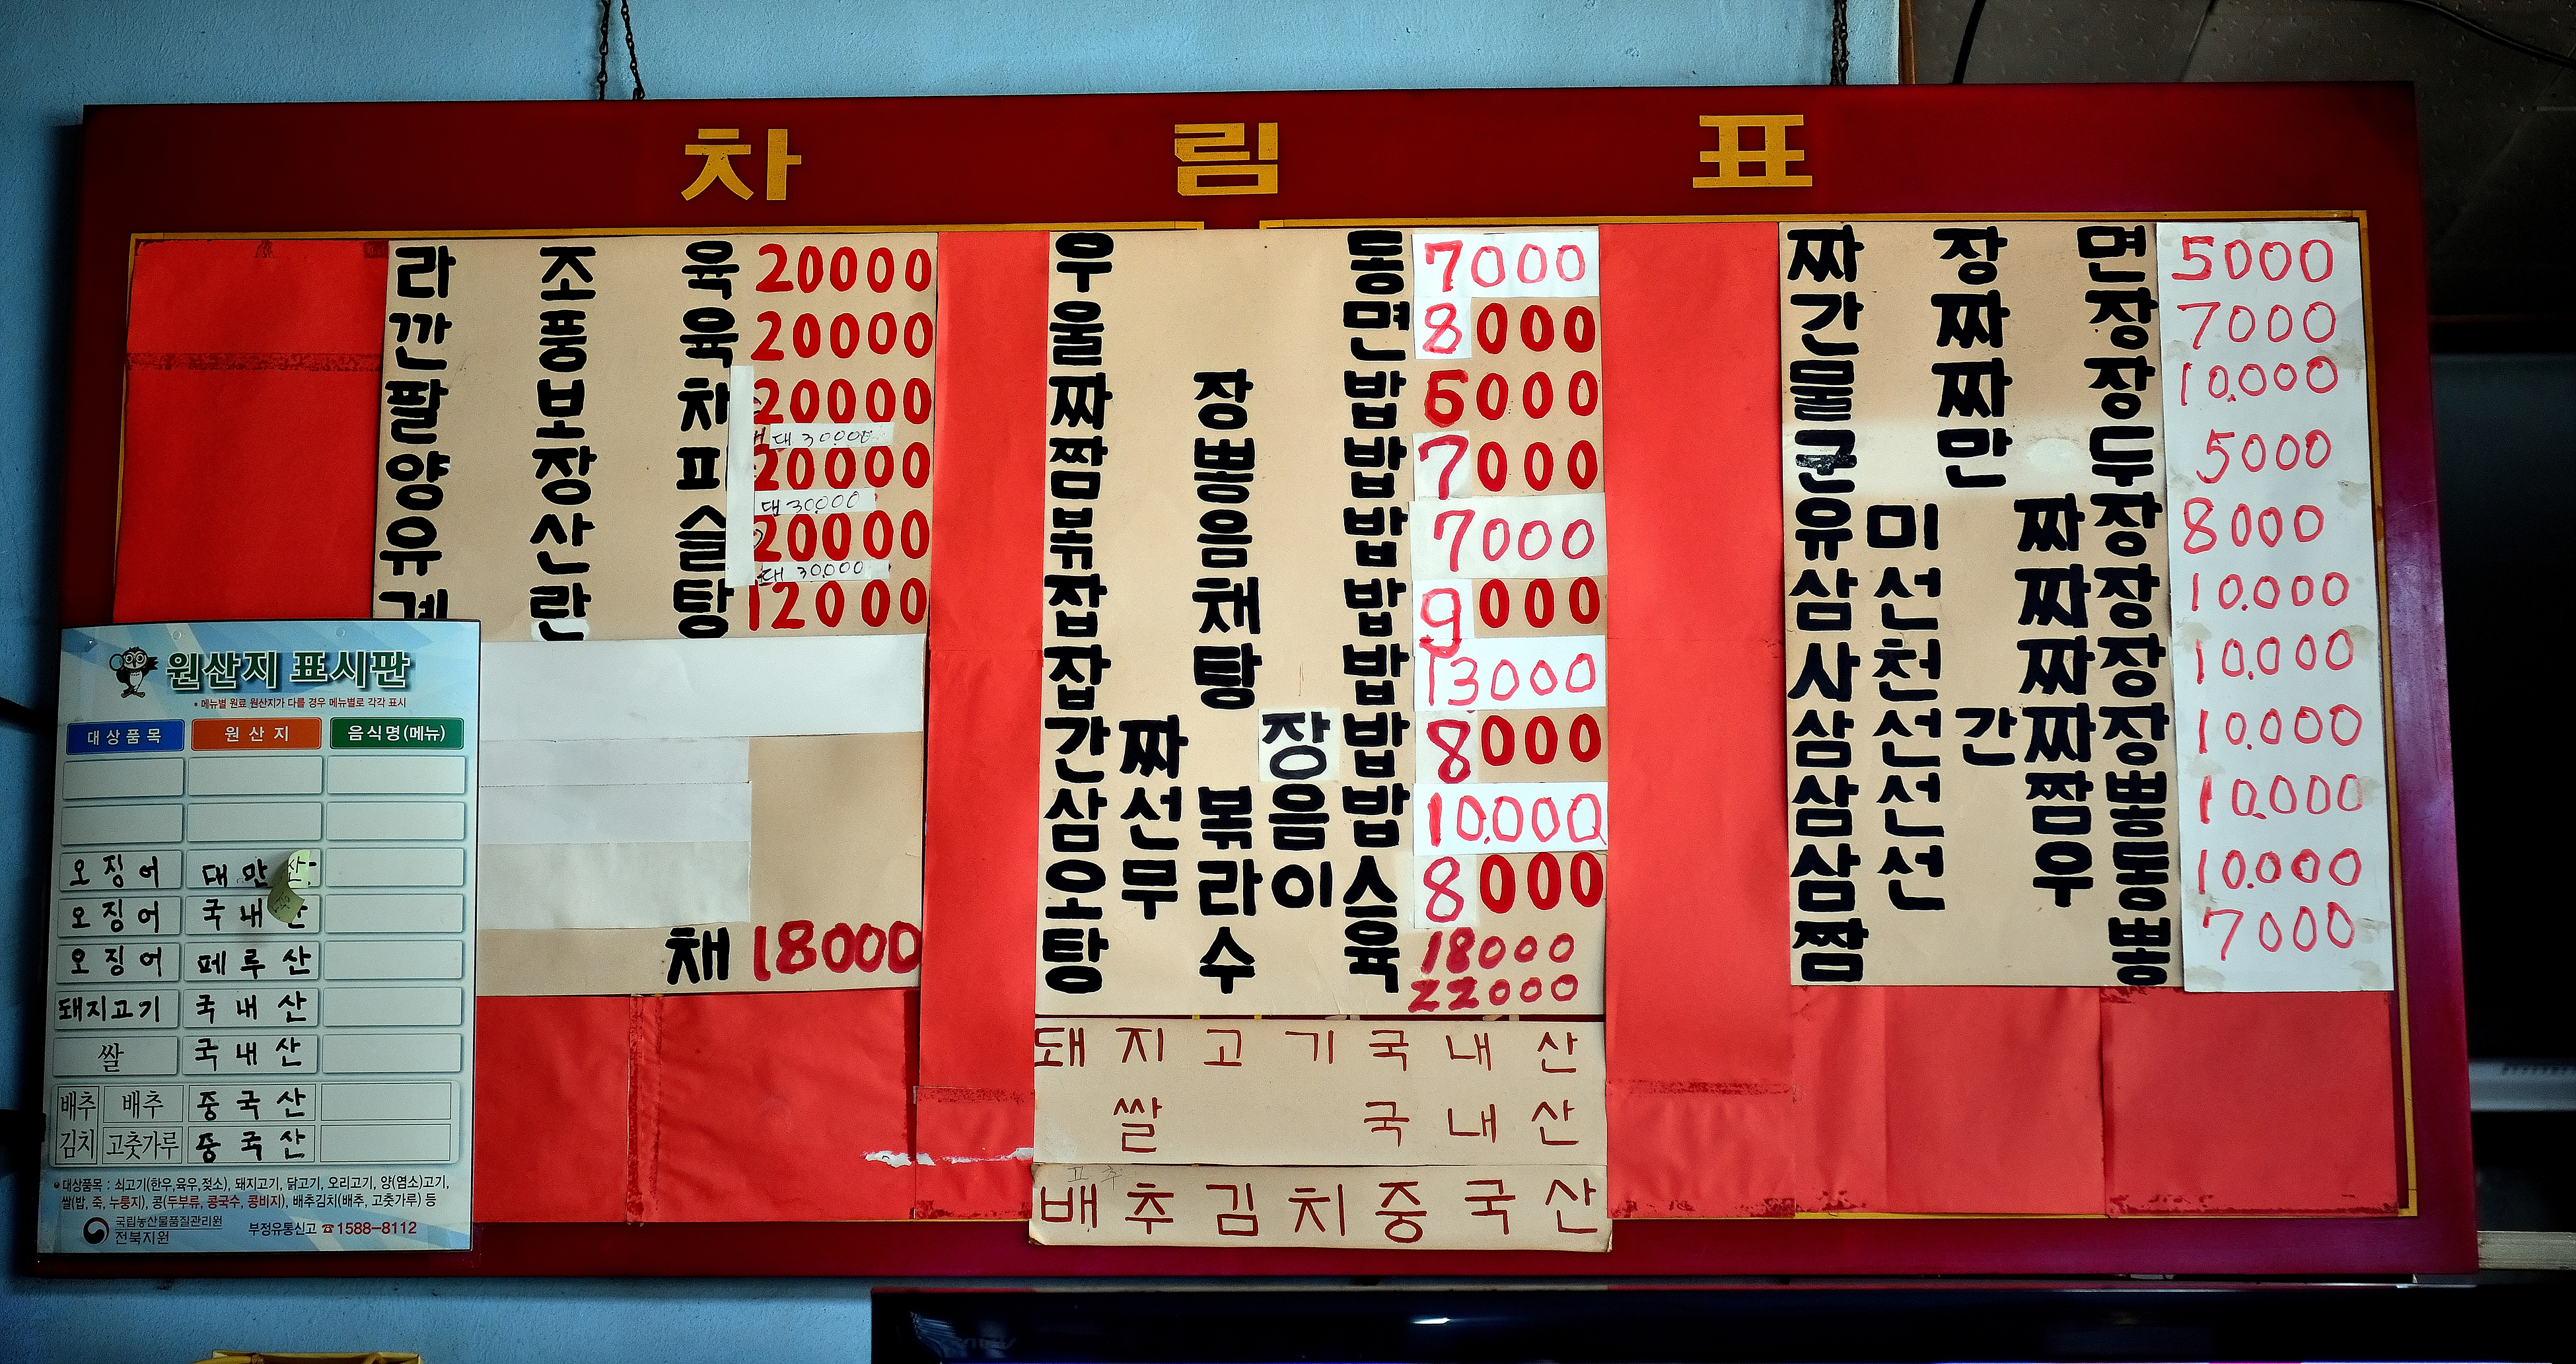 차림표
라조육 20000
깐풍육 20000
팔보채 20000
대 30.000
양장피 20000
대 30.000
유산슬 20000
대 30.000
계란탕 12000
채 18000
우동 7000
울면 8000
짜장밥 6000
짬뽕밥 7000
볶음밥 7000
잡채밥 9000
잡탕밥 13000
간짜장밥 8000
삼선볶음밥 10.000
오무라이스 8000
탕수육 18000
22000
돼지고기국내산
쌀 국내산
배추김치중국산
짜장면 5000
간짜장 7000
물짜장 10.000
군만두 5000
유미짜장 8000
삼선짜장 10.000
사천짜장 10.000
삼선간짜장 10.000
삼선짬뽕 10.000
삼선우동 10.000
짬뽕 7000
원산지 표시판
* 메뉴별 원료 원산지가 다를 경우 메뉴별로 각각 표시
대상품목 원산지 음식명(메뉴)
오징어 대만산
오징어 국내산
오징어 페루산
돼지고기 국내산
쌀 국내산
배추김치 배추 중국산
고춧가루 중국산
• 대상품목 : 쇠고기(한우,육우,젖소), 돼지고기, 닭고기, 오리고기, 양(염소)고기,
쌀(밥, 죽, 누룽지), 콩(두부류, 콩국수, 콩비지), 배추김치(배추, 고춧가루) 등
국립농산물품질관리원
전북지원
부정유통신고 ☎1588-8112